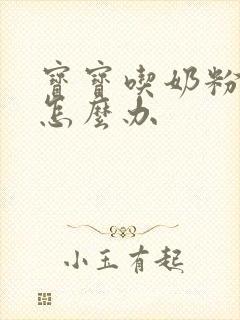 寶寶喫奶粉
怎麼办
小玉有起